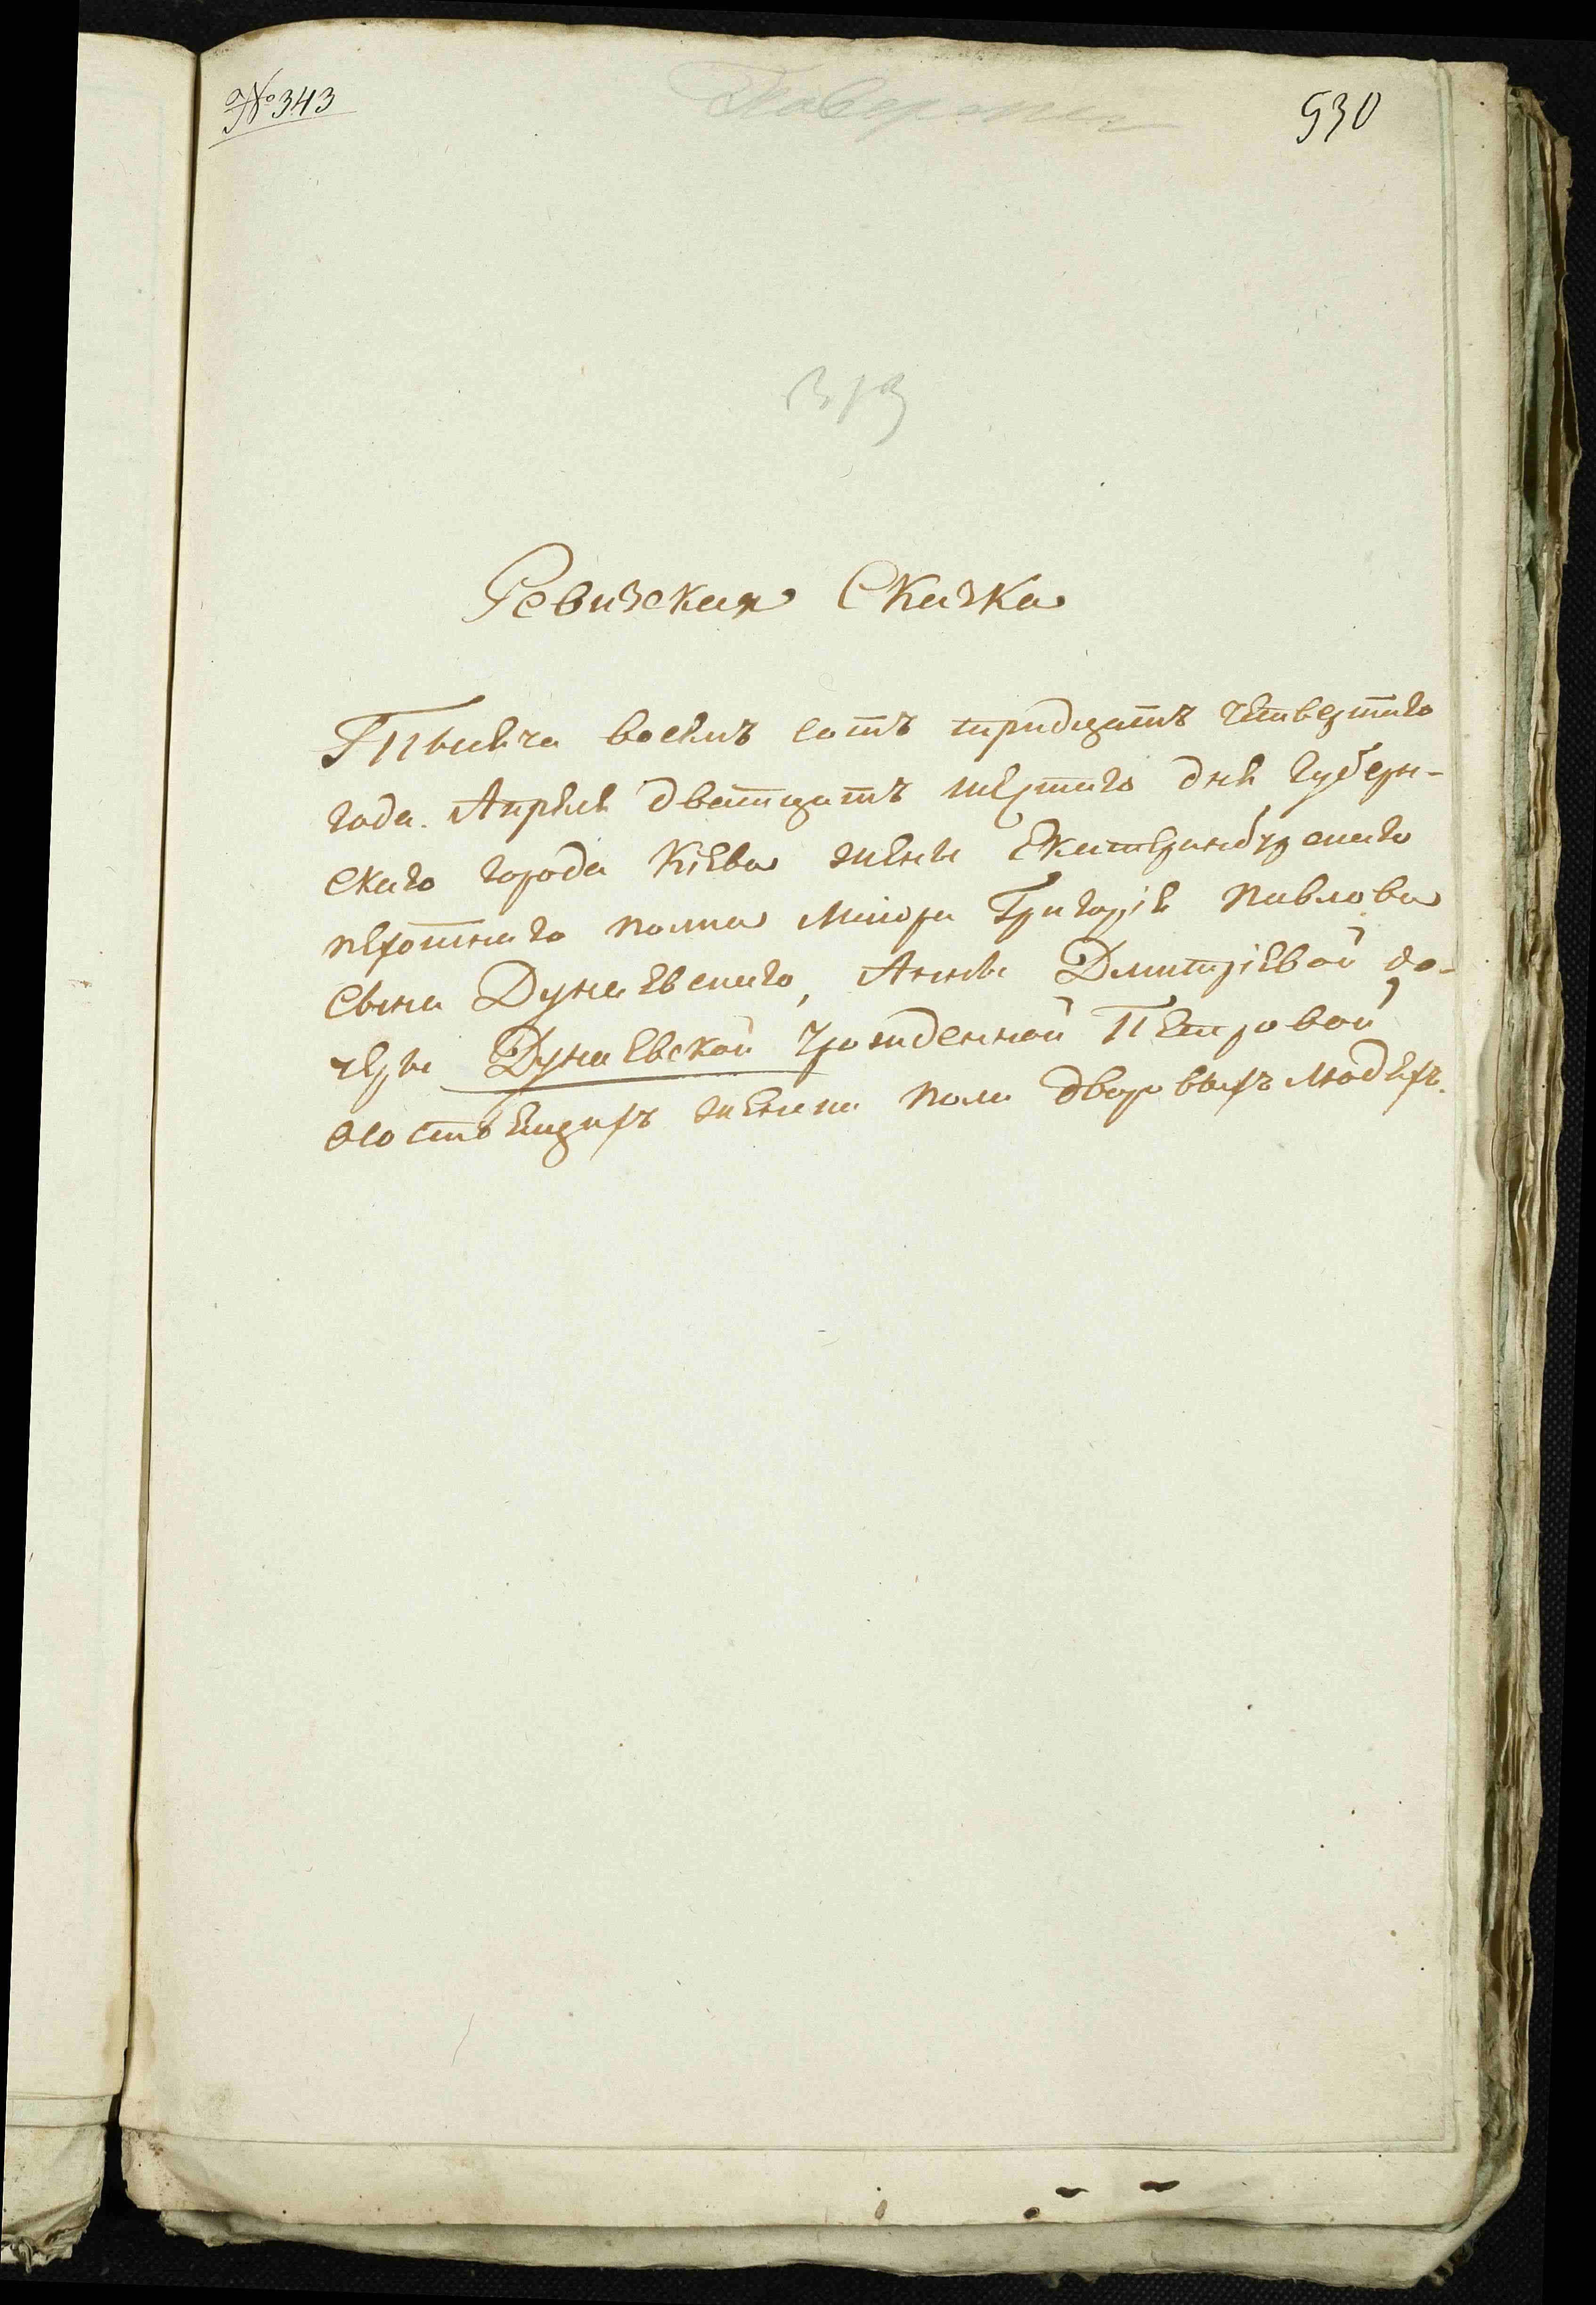 № 343
930
Ревизская Сказка
Тысяча восемъ сотъ тридцать четвертаго
года. Апреля дватцать шестаго дня Губерн-
скаго города Кіева жены Екатеринбурскаго
пехотнаго полка Маіора Григорія Павлова
сына Дунаевскаго, Анны Дмитріевой до-
чери Дунаевской урожденной Петровой
о состоящихъ женска пола дворовыхъ людехъ.